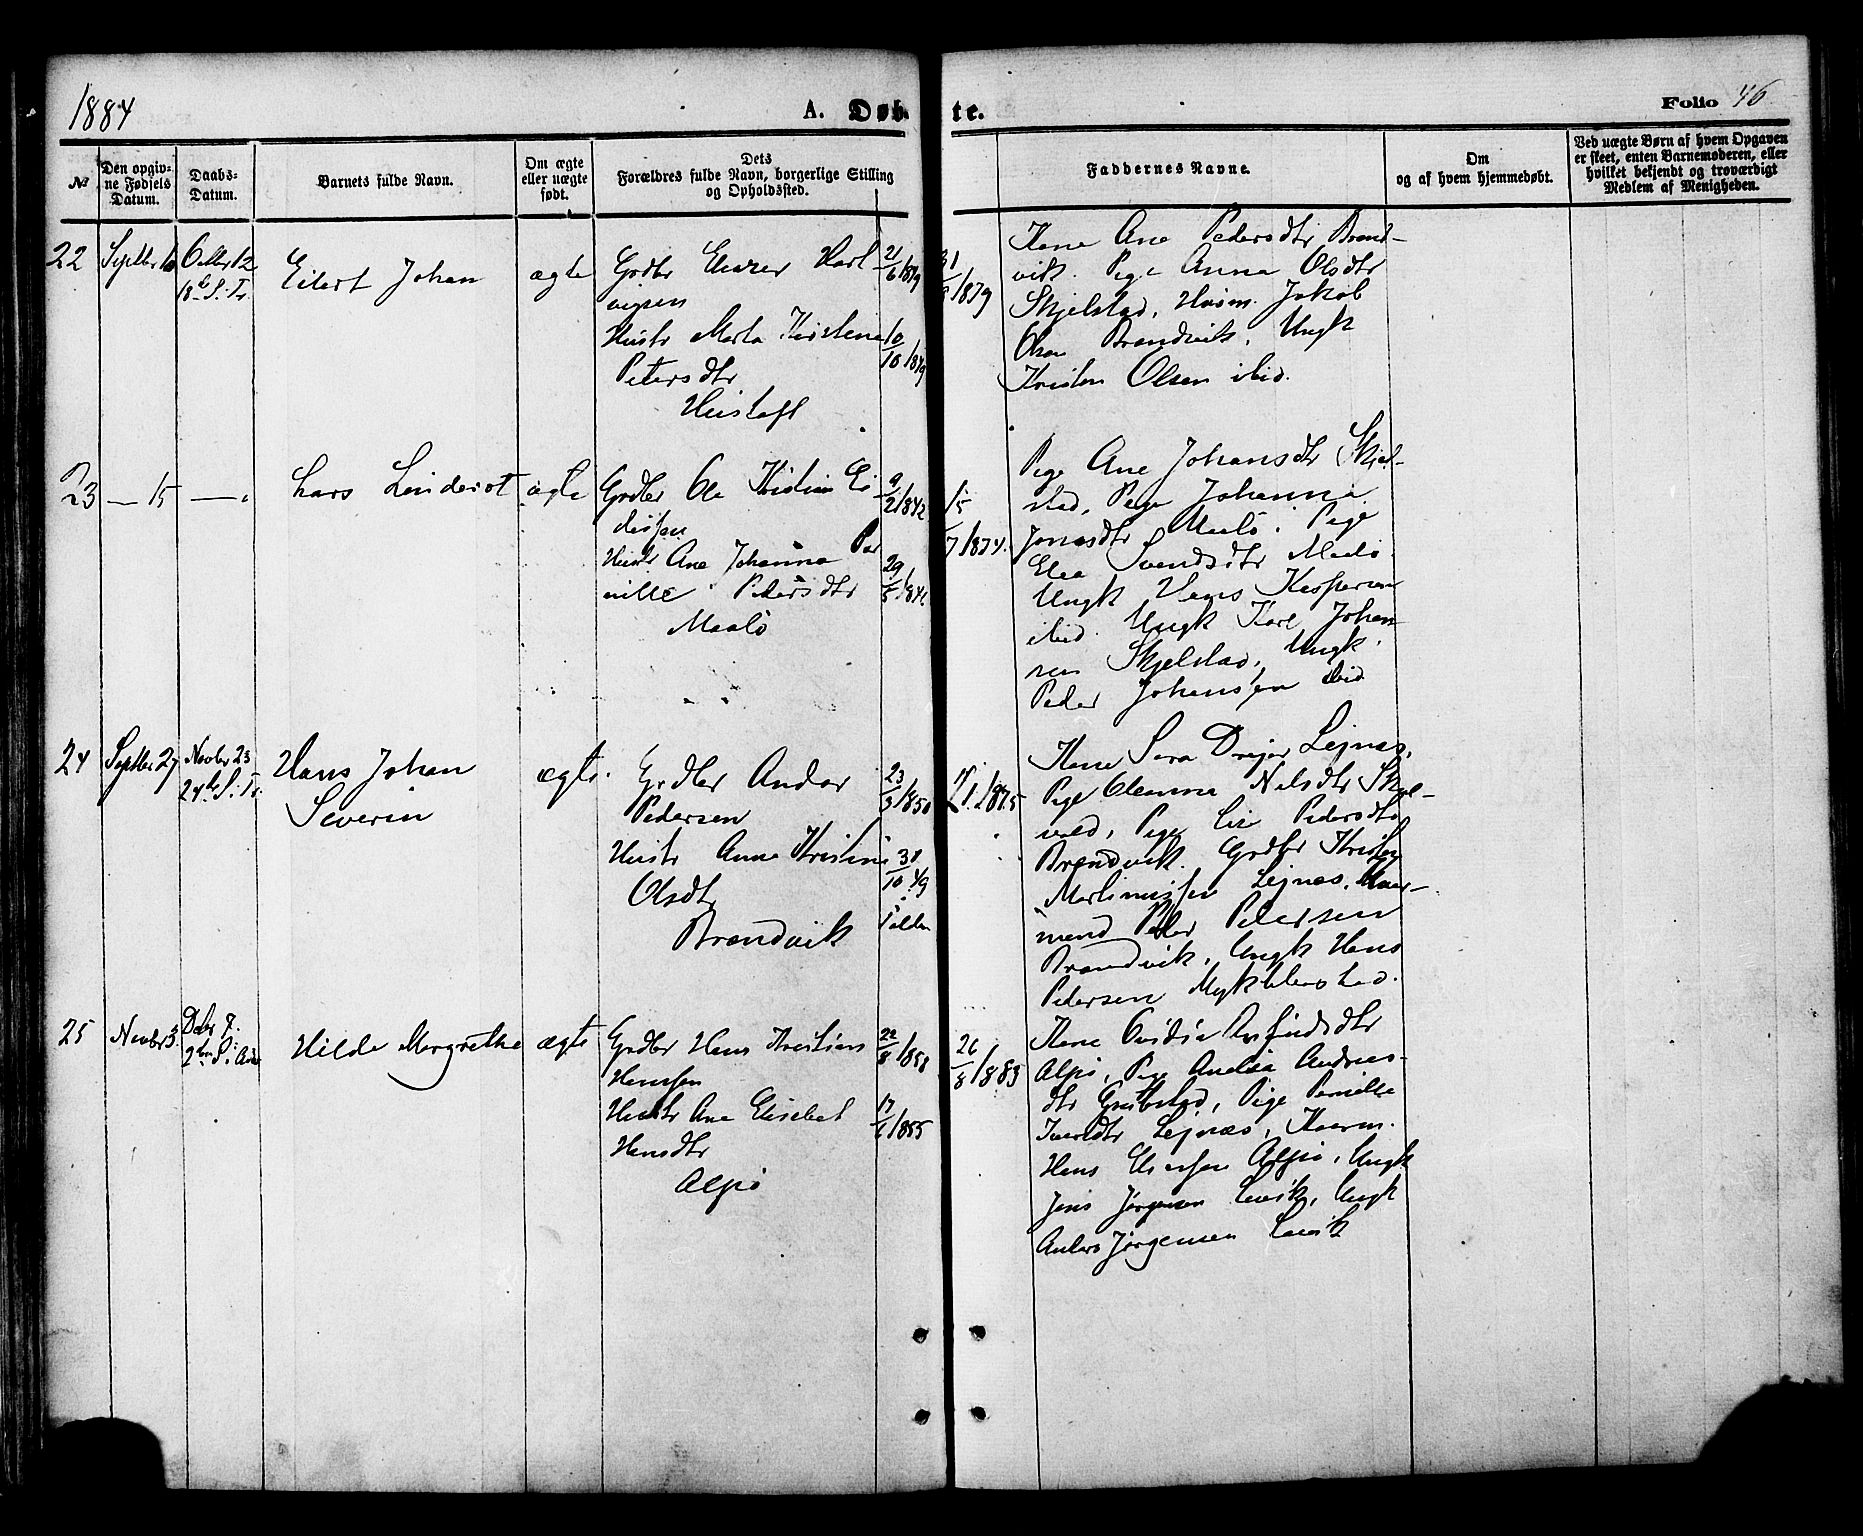 1884
A. Døbte.
Folio 46
№
Den opgivne Fødsels Datum.
Daabs-Datum.
Barnets fulde Navn.
Om ægte eller uægte født.
Dets Forældres fulde Navn, borgerlige Stilling og Opholdssted.
Faddernes Navne.
Om og af hvem hjemmedøbt.
Ved uægte Børn af hvem Opgaven er skeet, enten Barnemoderen, eller hvilket bekjendt og troværdigt Medlem af Menigheden.
22
Septbr 10
Octbr 12
18de S. Tr.
Eilert Johan
ægte
Grdbr
vigsen
Hustr Marta Kirstena
Petersdtr
10/10 1849
Kone Ane Pedersdtr Brand-
vik. Pige Anna Olsdtr
Skjelstad, Husm. Jakob
Olsen Brandvik, Ungk
Kristen Olsen ibid.
23
— 15
— "
Lars Linderot
ægte
Grdbr Ole Kristian
9/2 1842
Hustr Ane Johanna Per
nille Pedersdtr
Maalø
15/7 1874.
Pige Ane Johansdtr Skjel-
stad, Pige Johanna
Jonasdtr Maalø. Pige
Elea Svendsdtr Maalø
Ungk Hans Kaspersen
ibid. Ungk Karl Johan
sen Skjelstad, Ungk.
Peder Johansen ibid
24
Septbr 27
Novbr 23
24de S. Tr.
Hans Johan
Severin
ægte.
Grdbr Andor
Pedersen
23/3 1850
Hustr Anna Kristine
Olsdtr
Brandvik
Kone Sara Drejer Lejnæs,
Pige Oleanna Nilsdtr
vold, Pige Lise Pedersdtr
Brandvik. Grdbr Kristen
Martinussen Lejnæs,
mand Peder Pedersen
Brandvik, Ungk Hans
Pedersen Myklebostad.
25
Novbr 3.
Decbr 7.
2den S. i Adv
Hilda Margrethe
ægte
Grdbr Hans Kristian
Hansen
22/8 1858
Hustr Ane Elisabet
Hansdtr
Alpø
26/8 1883
Kone
Alpø, Pige Amalia Andreas-
dtr Grøtstad, Pige Pernille
Iversdtr Lejnæs, Kaarm.
Hans Alpø, Ungk
Jens Jørgensen Levik, Ungk
Anders Jørgensen Levik